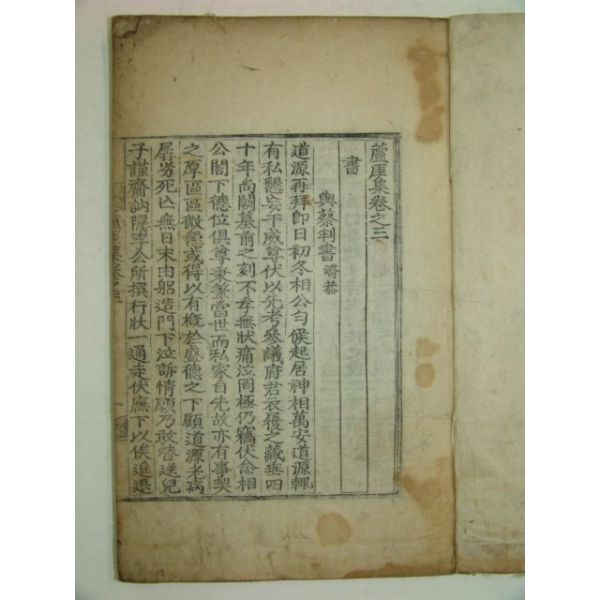 蘆厓集卷之三
書
與蔡判書 濟恭
道源再拜卽日初冬相公勻候起居神相萬安道源輒
有私懇妄干威尊伏以先考參議府君衣履之藏垂四
十年尚闕墓前之刻不孝無狀痛泣罔極仍竊伏念相
公閤下德位俱尊秉筆當世而私家自先故亦有事契
之厚區區微懇或得以有槪於盛德之下顧道源老病
孱劣死亾無日末由躬造門下泣訴情願乃敢替送兒
子謹齎訥隱李公所撰行狀一通走伏廡下以俟進退